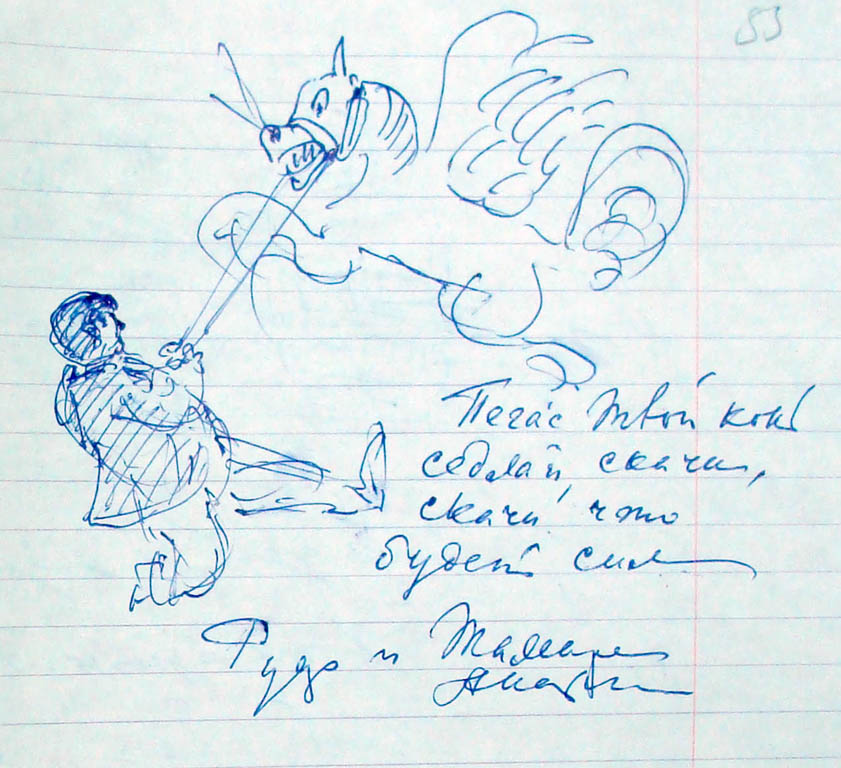 53
Пегас твой конь
седлай, скачи,
скачи что
будет сил
и Тамаре